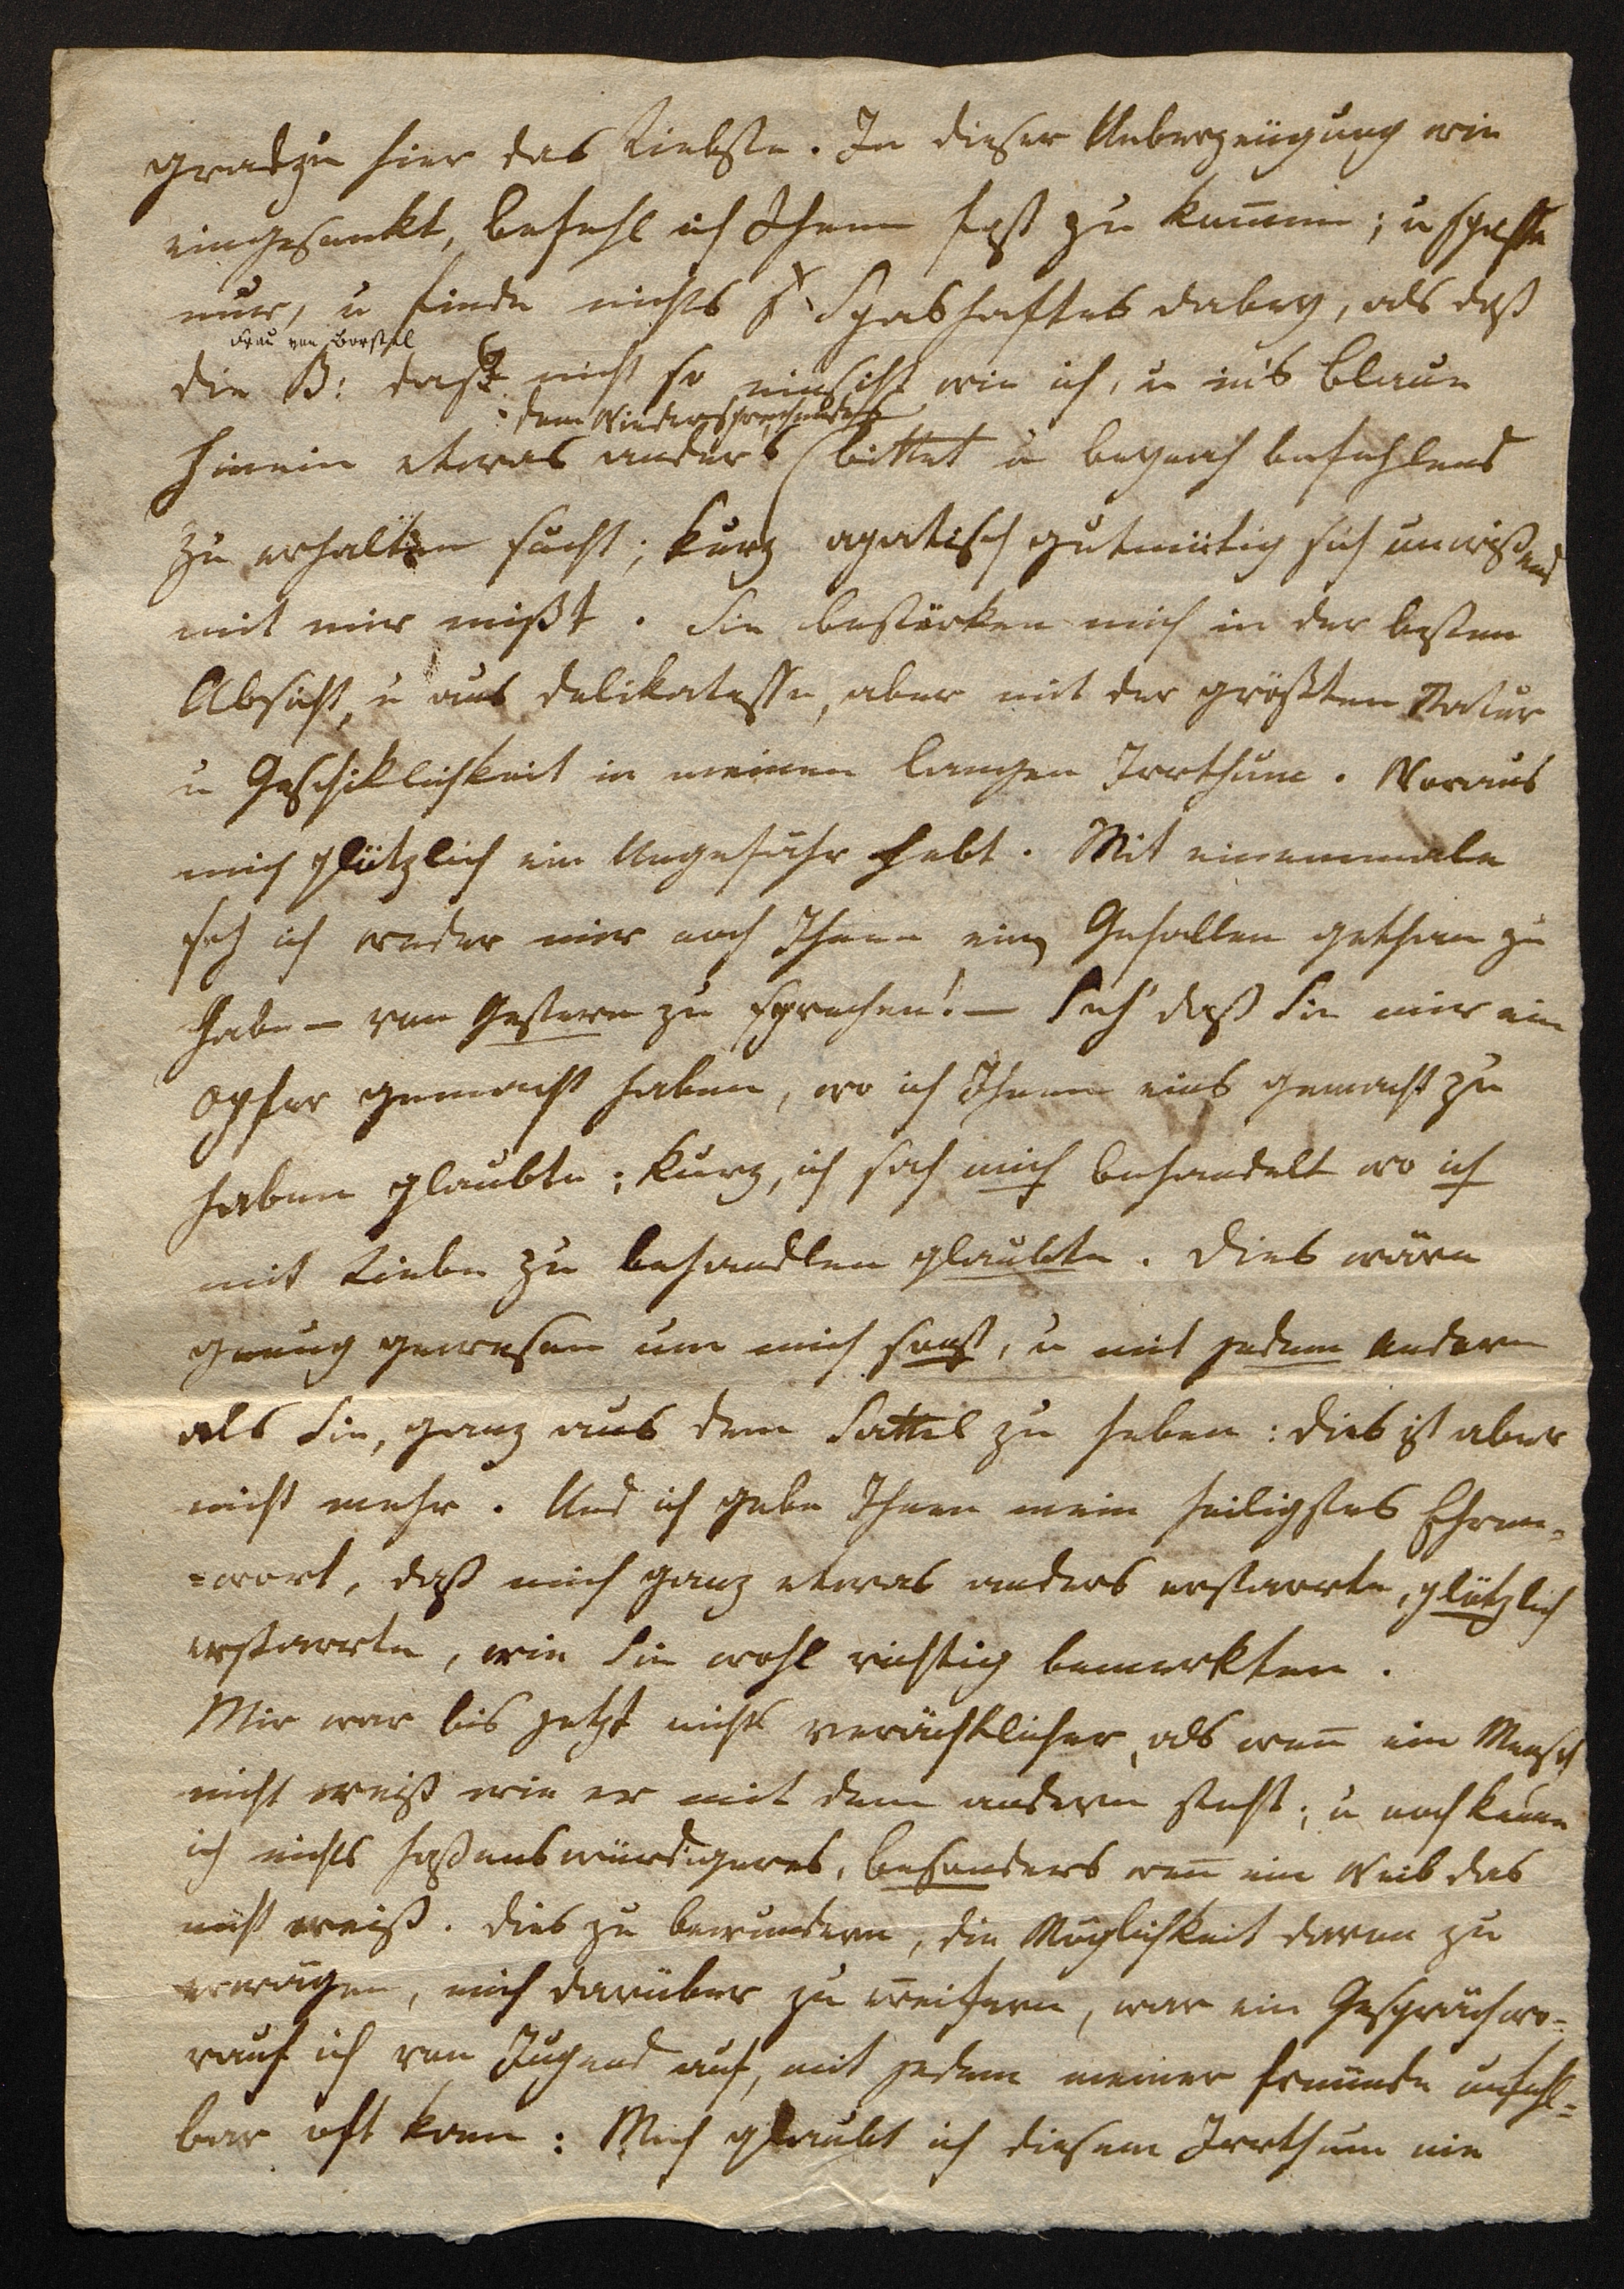 gradzu hier das Liebste. In dieser Ueberzeugung wie
eingesenkt, befehl ich Ihnen fest zu kommen; u spaße
nur, u finde nichts Spashaftes dabey, als daß
Frau von Borstel
die B: das nicht so einsieht wie ich, u in's Blaue
dem Wiedersprechendes
hinein etwas anders bittet u beynah befehlend
zu erhalten sucht; kurz apatisch gutmütig sich unwißend
mit mir mißt. Sie bestärken mich in der besten
Absicht, u aus delikatesse, aber mit der größten Natur
u Geschiklichkeit in meinem langen Irrthum. Woraus
mich plötzlich ein Ungefähr hebt. Mit einemmale
seh ich weder mir noch Ihnen ein Gefallen gethan zu
habe — von Gestern zu sprechen! — Seh' daß Sie mir ein
Opfer gemacht haben, wo ich Ihnen eins gemacht zu
haben glaubte; kurz, ich sah mich behandelt wo ich
mit Liebe zu behandlen glaubte. Dies wäre
genug gewesen um mich sonst, u mit jedem Andern
als Sie, ganz aus dem Sattel zu heben: dies ist aber
nicht mehr. Und ich gebe Ihnen mein heiligstes Ehren-
=wort, daß mich ganz etwas anders erstarrte, plötzlich
erstarrte, wie Sie wohl richtig bemerkten.
Mir war bis jetzt nichts verächtlicher, als wen̄ ein Mensch
nicht weiß wie er mit dem andern steht; u noch kenne
ich nichts haßenswürdigeres, besonders wen̄ ein Weib das
nicht weiß. Dies zu bewundern, die Möglichkeit davon zu
erwägen, mich darüber zu ereifern, war ein Gespräch wo=
rauf ich von Jugend auf, mit jedem meiner Freunde unfehl=
bar oft kam: Mich glaubt ich diesem Irrthum nie